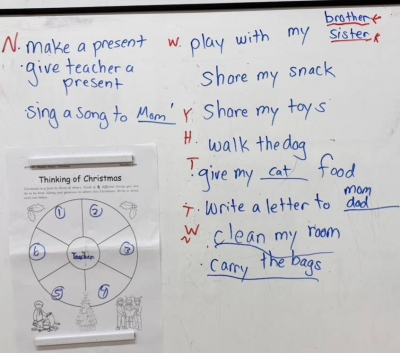 N. make a present
· give teacher a
present
· sing a song to Mom'
W. play with my brother
sister
Share my snack
Y Share my toys
H. walk the dog
T. give my cat food
T. Write a letter to mom
dad
W . clean my room
. carry the bags
Thinking of Christmas
1
2
3
4
5
6
Teacher